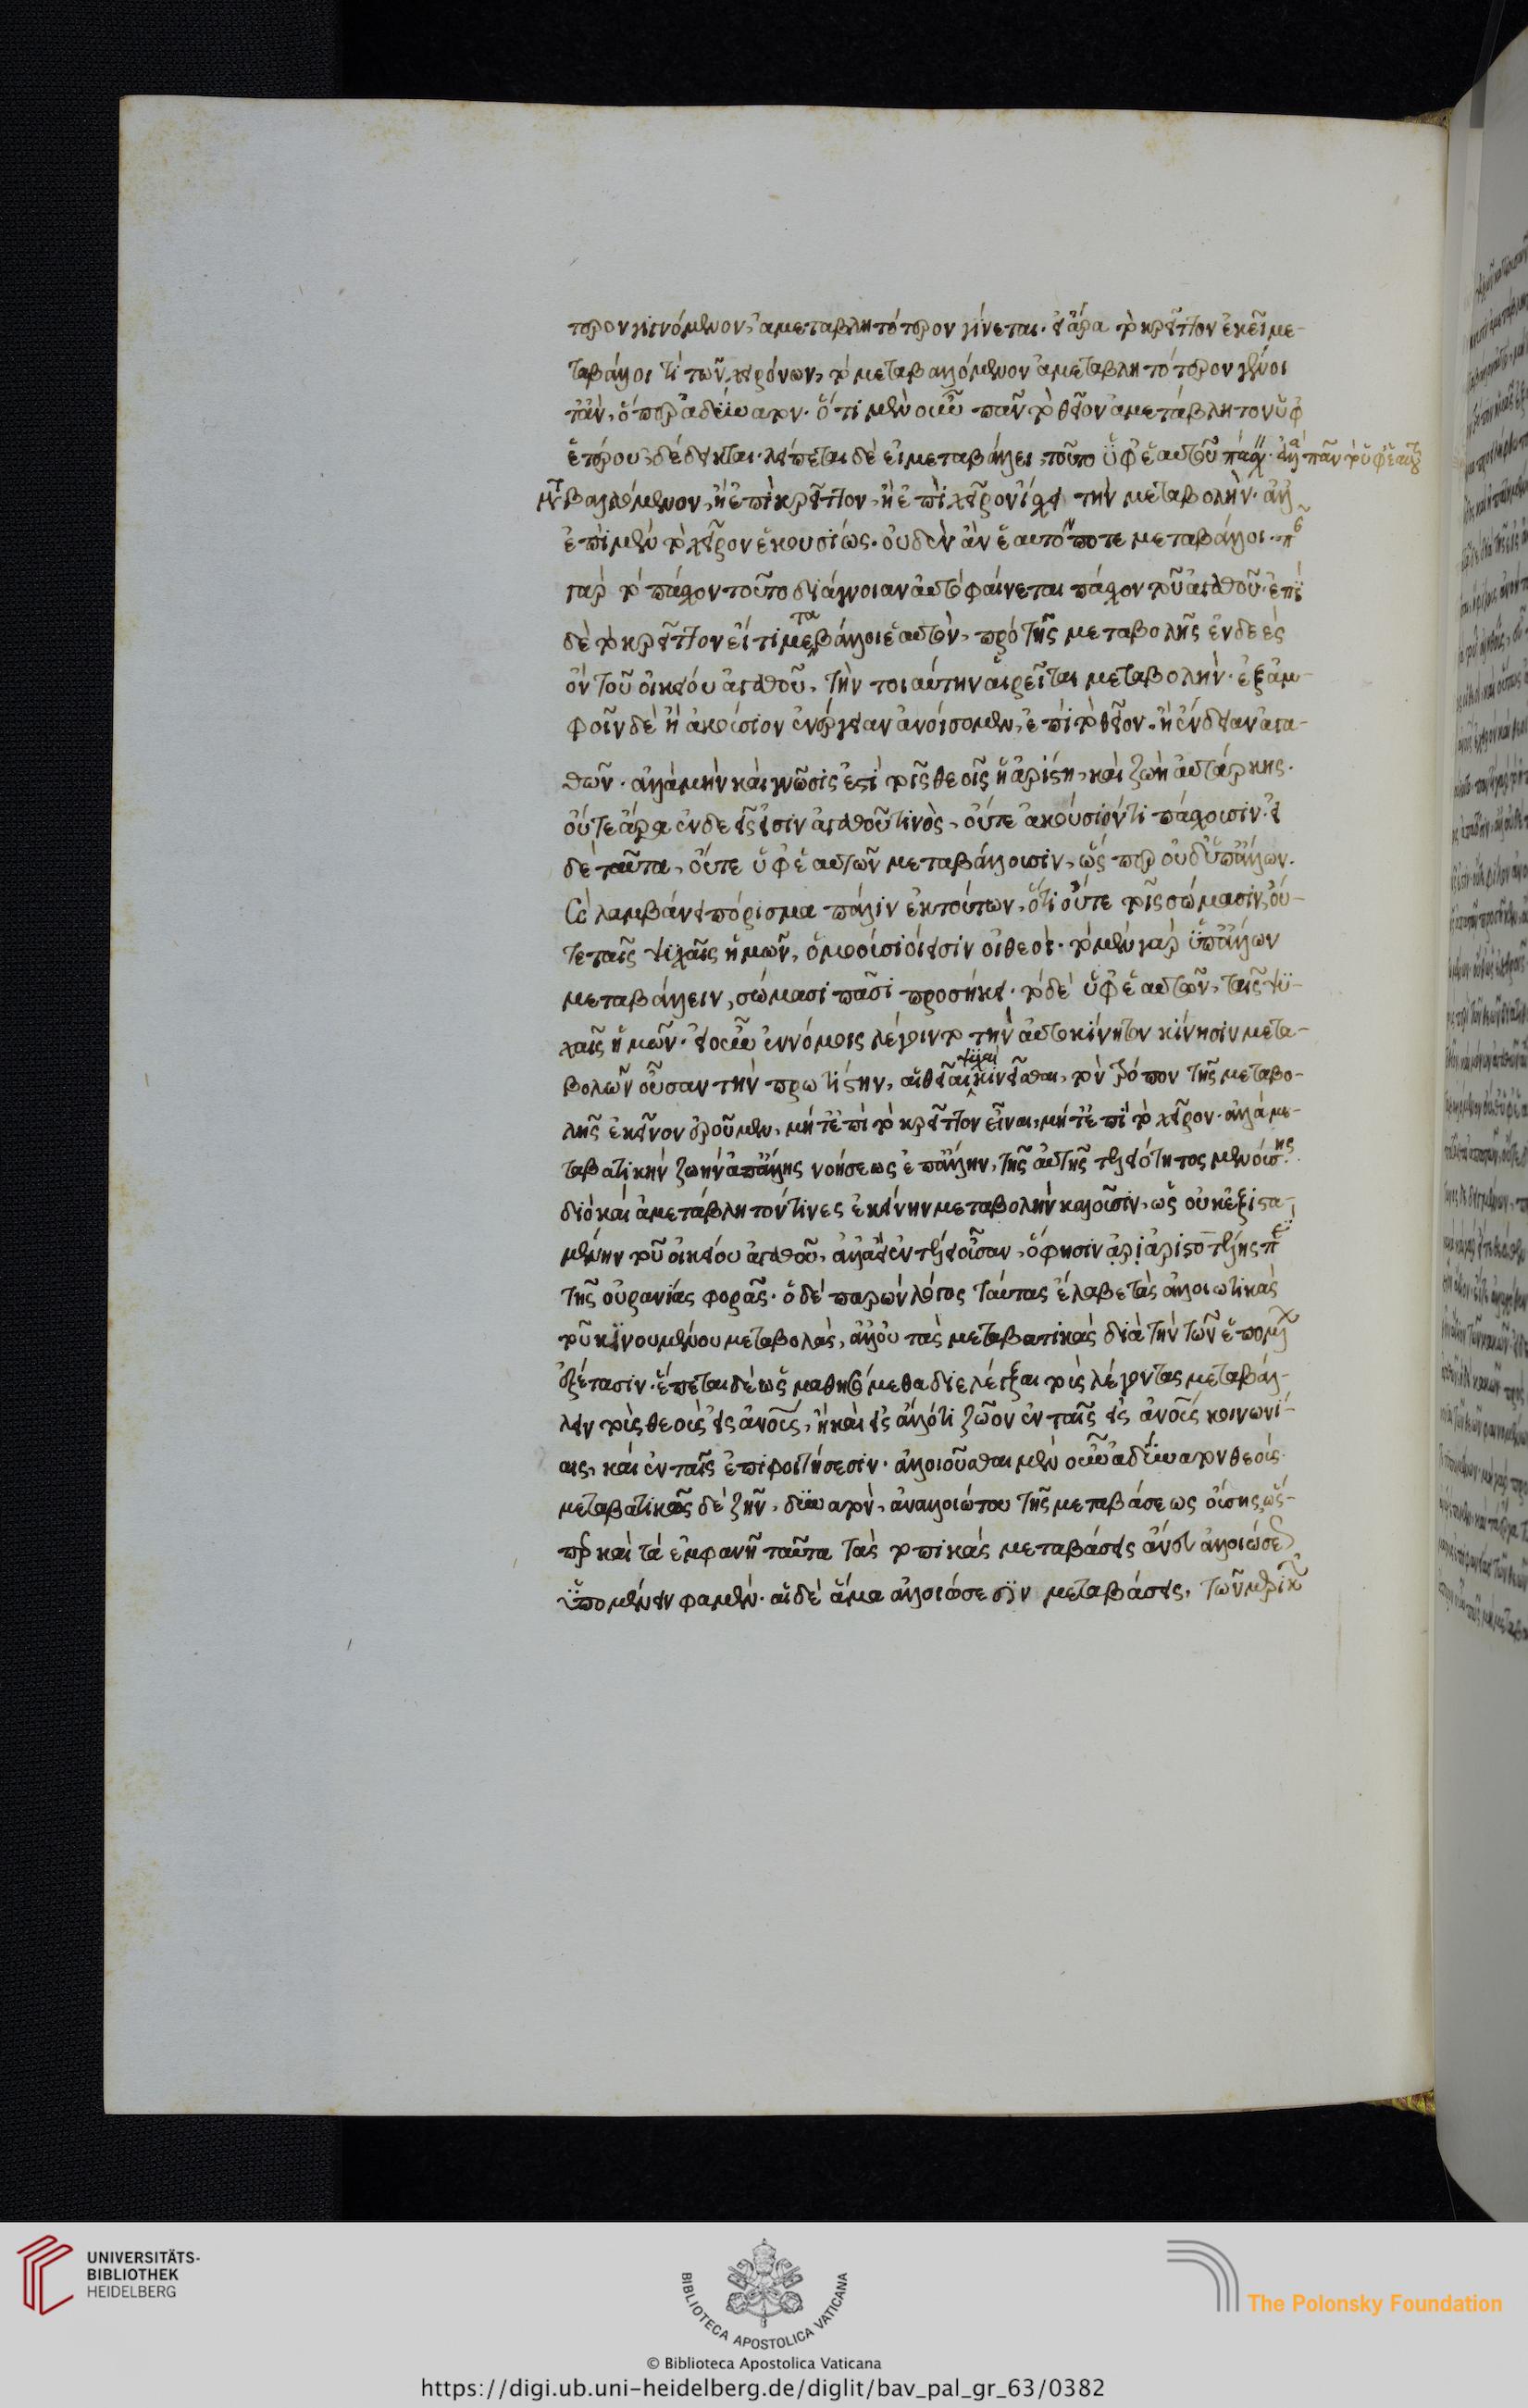 τερον γινόμενον, ἀμεταβλητότερον γίνεται. εἰ ἄρα τὸ κρεῖττον ἐκεῖ με-
ταβάλλοι τί τῶν χειρόνων, τὸ μεταβαλλόμενον ἀμεταβλητότερον γένοι
τ ἂν, ὅπερ ἀδύνατον. ὅτι μὲν οὖν πᾶν τὸ θεῖον ἀμετάβλητον ὑφ
ἑτέρου, δέδεικται. λείπεται δὲ εἰ μεταβάλλει, τοῦτο ὑφ ἑαυτοῦ πάσχειν. ἀλλὰ πᾶν τὸ ὑφ ἑαυτοῦ
μεταβαλλόμενον, ἢ ἐπὶ κρεῖττον, ἢ ἐπὶ χεῖρον ἴσχει τὴν μεταβολήν. ἀλλ
ἐπὶ μὲν τὸ χεῖρον ἑκουσίως. οὐδὲν ἂν ἑαυτόν ποτε μεταβάλλοι. πᾶν
γὰρ τὸ πάσχον τοῦτο δι ἄγνοιαν αὐτὸ φαίνεται πάσχον τοῦ ἀγαθοῦ. ἐπὶ
δὲ τὸ κρεῖττον εἴ τι μεταβάλλοι ἑαυτὸν, πρὸ τῆς μεταβολῆς ἐνδεὲς
ὂν τοῦ οἰκείου ἀγαθοῦ, τὴν τοιαύτην αἱρεῖται μεταβολήν. ἐξ ἀμ-
φοῖν δὲ ἢ ἀκούσιον ἐνέργειαν ἀνοίσομεν, ἐπὶ τὸ θεῖον. ἢ ἔνδειαν ἀγα-
θῶν. ἀλλὰ μὴν καὶ γνῶσίς ἐστι τοῖς θεοῖς ἡ ἀρίστη, καὶ ζωὴ αὐτάρκης.
οὔτε ἄρα ἐνδεεῖς εἰσιν ἀγαθοῦ τινὸς, οὔτε ἀκούσιόν τι πάσχουσιν. εἰ
δὲ ταῦτα, οὔτε ὑφ ἑαυτῶν μεταβάλλουσιν, ὥσπερ οὐδ ὑπ ἄλλων.
ὃ λαμβάνει πόρισμα πάλιν ἐκ τούτων, ὅτι οὔτε τοῖς σώμασιν, οὔ-
τε ταῖς ψυχαῖς ἡμῶν, ὁμοούσιοι εἰσὶν οἱ θεοί. τὸ μὲν γὰρ ὑπ ἄλλων
μεταβάλλειν, σώμασι πᾶσι προσήκει. τὸ δὲ ὑφ ἑαυτῶν, ταῖς ψυ-
χαῖς ἡμῶν. εἰ οὖν ἐν νόμοις λέγοιτο τὴν αὐτοκίνητον κίνησιν μετα-
βολῶν οὖσαν τὴν πρωτίστην, αἱ θεῖαι ψυχαὶ κινεῖσθαι, τὸν τρόπον τῆς μεταβο-
λῆς ἐκεῖνον ἐροῦμεν, μήτ ἐπὶ τὸ κρεῖττον εἶναι, μήτ ἐπὶ τὸ χεῖρον. ἀλλὰ με-
ταβατικὴν ζωὴν ἀπ ἄλλης νοήσεως ἐπ ἄλλην, τῆς αὐτῆς τελειότητος μενούσης.
διὸ καὶ ἀμετάβλητόν τινες ἐκείνην μεταβολὴν καλοῦσιν, ὡς οὐκ ἐξιστα-
μένην τοῦ οἰκείου ἀγαθοῦ, ἀλλ ἀεὶ ἐν τέλει οὖσαν, ὅ φησιν ἀρι ἀριστοτέλης περὶ
τῆς οὐρανίας φορᾶς. ὁ δὲ παρὼν λόγος ταύτας ἔλαβε τὰς ἀλλοιωτικὰς
τοῦ κινουμένου μεταβολὰς, ἀλλ οὐ τὰς μεταβατικὰς διὰ τὴν τῶν ἑπομένων
ἐξέτασιν. ἕπεται δὲ ὡς μαθησόμεθα διελέγξαι τοὺς λέγοντας μεταβάλ-
λειν τοὺς θεοὺς εἰς ἀνους, ἢ καὶ εἰς ἄλλό τι ζῶον ἐν ταῖς εἰς ἀνους κοινωνί-
αις, καὶ ἐν ταῖς ἐπιφοιτήσεσιν. ἀλλοιοῦσθαι μὲν οὖν ἀδύνατον θεούς.
μεταβατικῶς δὲ ζῆν, δυνατὸν, ἀναλλοιώτου τῆς μεταβάσεως οὔσης, ὥσ-
περ καὶ τὰ ἐμφανῆ ταῦτα τὰς τοπικὰς μεταβάσεις ἄνευ ἀλλοιώσεως
ὑπομένειν φαμέν. αἱ δὲ ἅμα ἀλλοιώσεσιν μεταβάσεις, τῶν μερικῶν
UNIVERSITÄTS-
BIBLIOTHEK
HEIDELBERG
BIBLIOTECA APOSTOLICA VATICANA
The Polonsky Foundation
© Biblioteca Apostolica Vaticana
https://digi.ub.uni-heidelberg.de/diglit/bav_pal_gr_63/0382